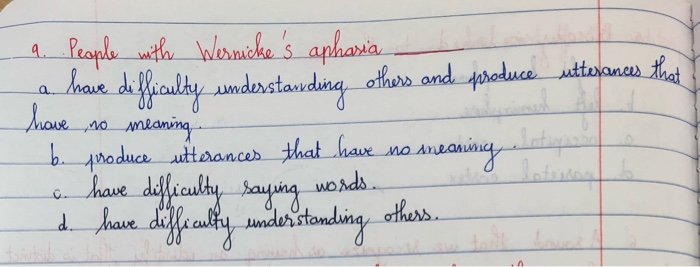 9. People with Wernicke's aphasia ______
a. have difficulty understanding others and produce utterances that
have no meaning.
b. produce utterances that have no meaning.
c. have difficulty saying words.
d. have difficulty understanding others.